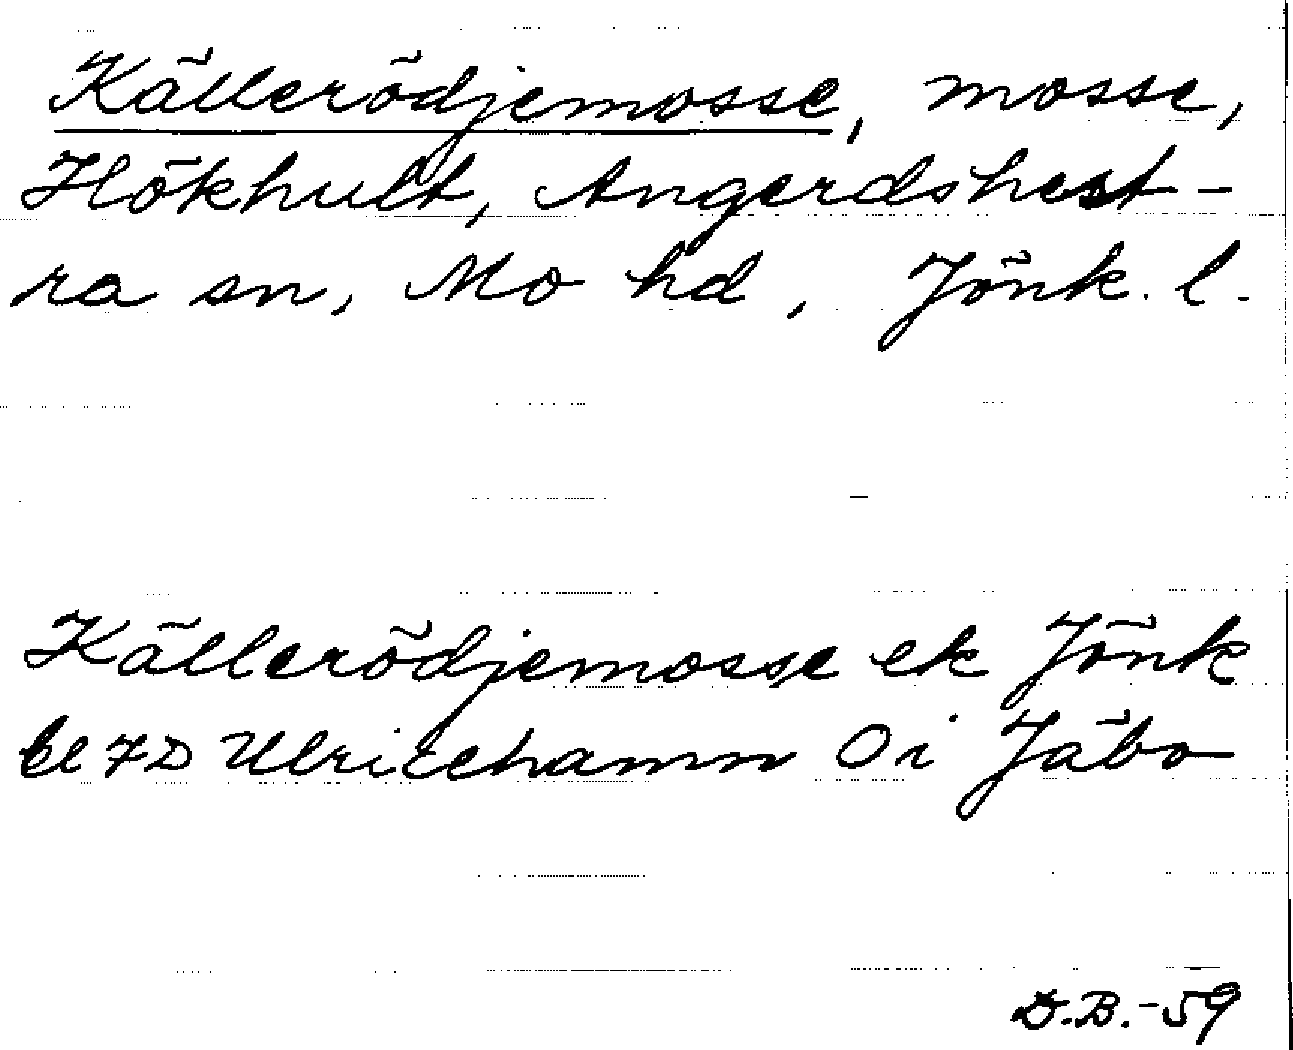 Källerödjemosse, mosse,
Hökhult, Angerdshest-
ra sn, Mo hd, Jönk. l.
Källerödjemosse ek Jönk
bl 7D Ulricehamn Oi Jäbo
D.B.-59